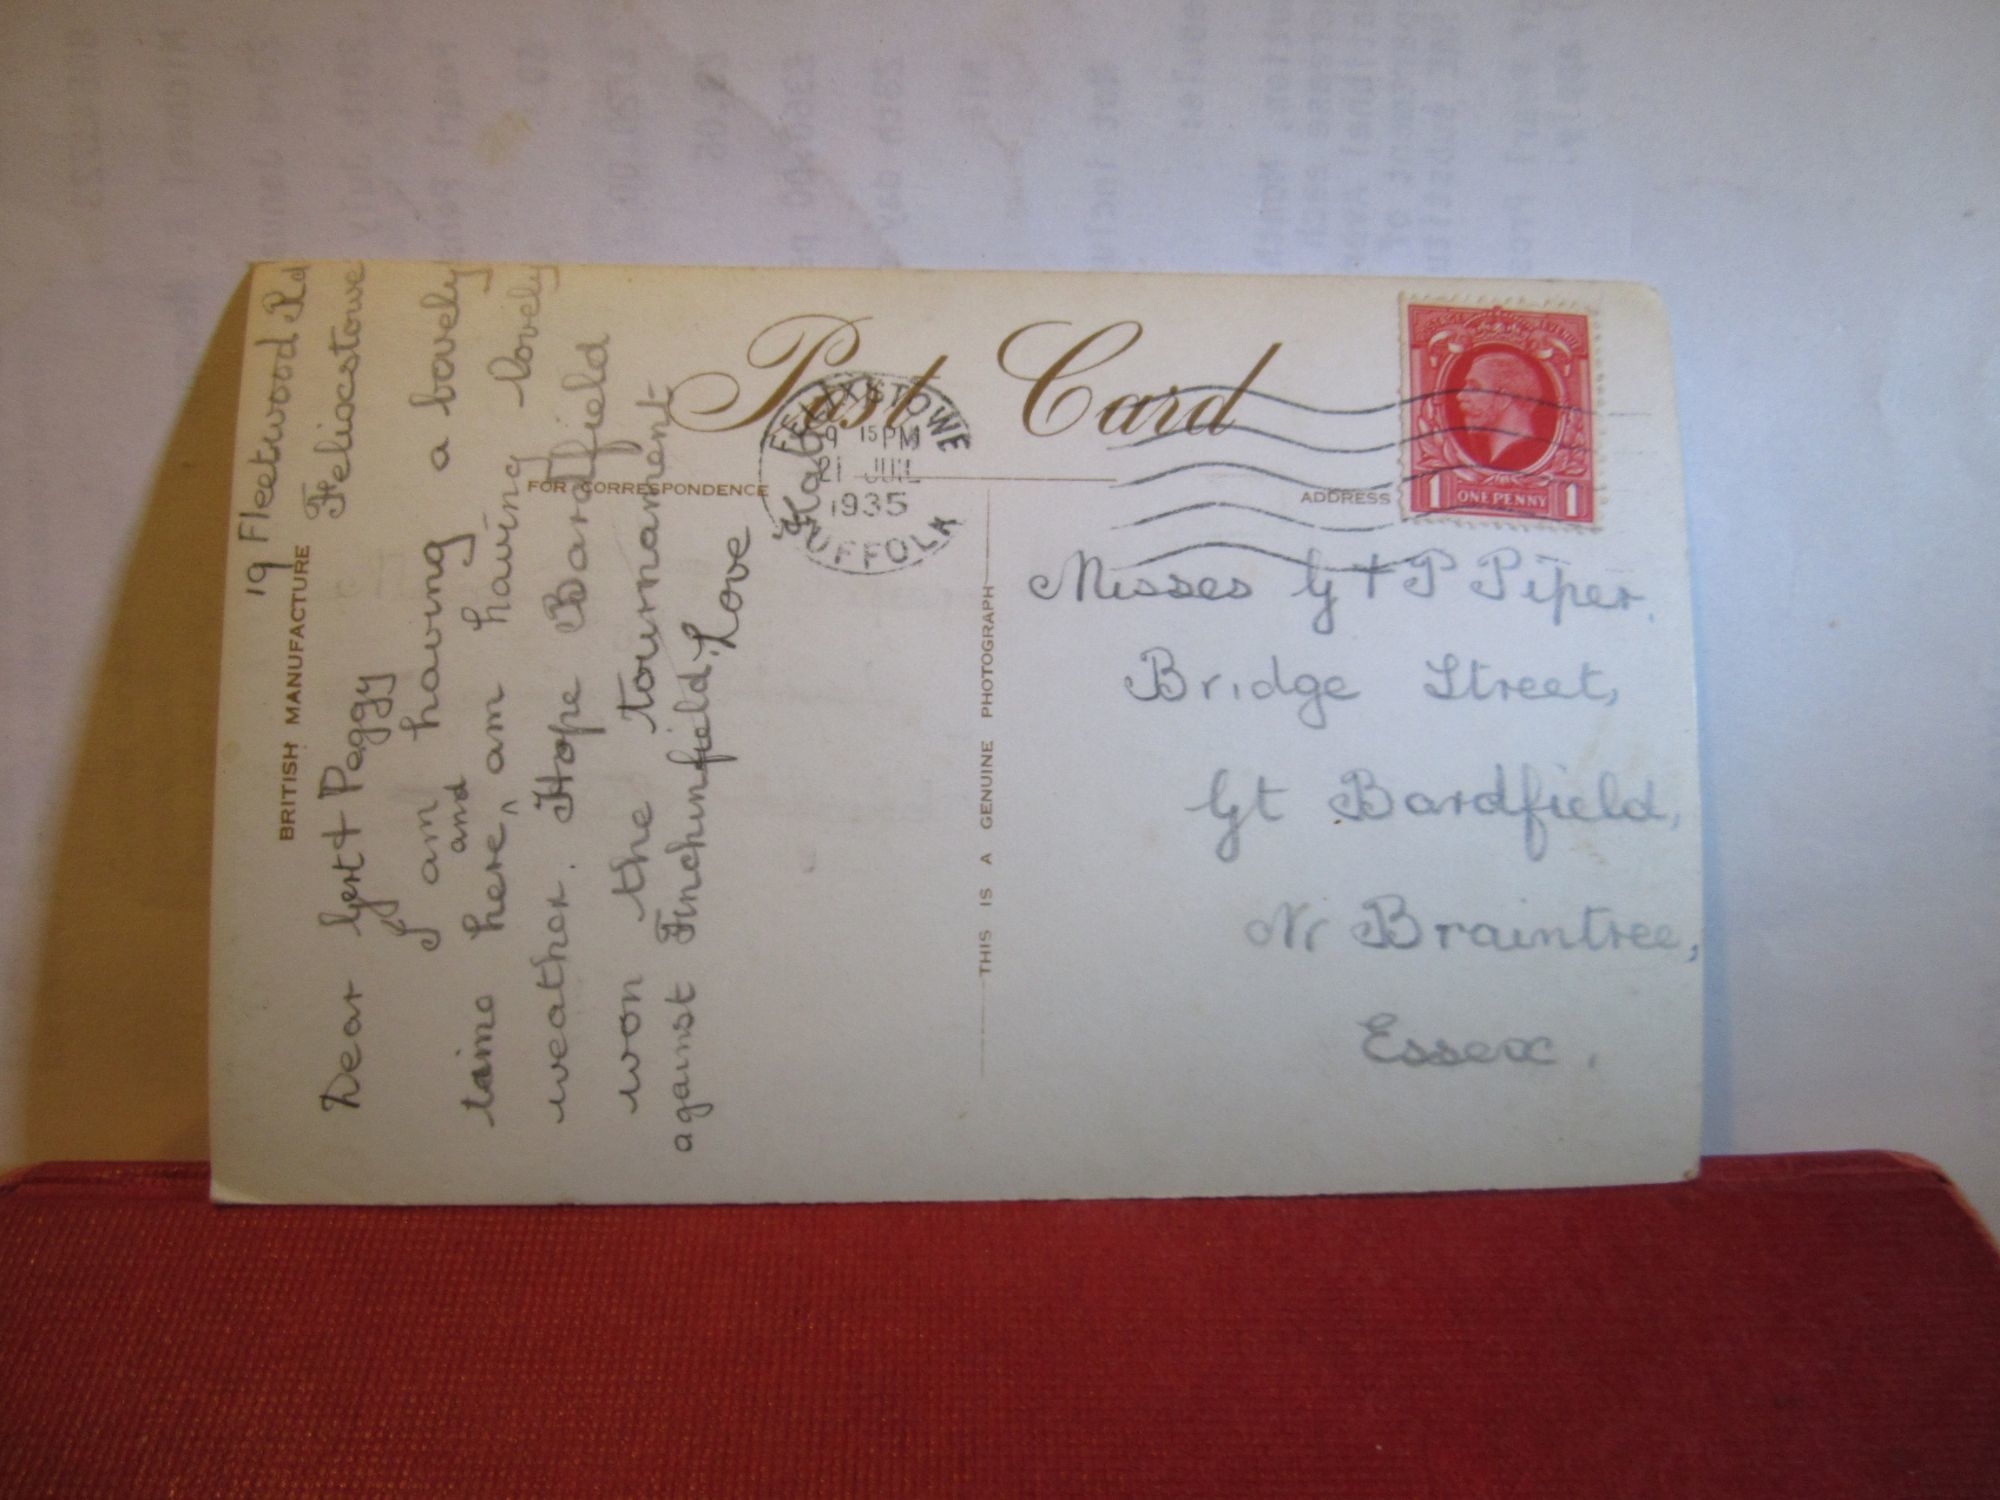 19 Fleetwood Rd
Feliocstowe
Dear Gert + Peggy
I am having a lovely
and
time here, am having lovely
weather. Hope Bardfield
won the tournament
against Finchinfield. Love
BRITISH MANUFACTURE
Post Card
FOR CORRESPONDENCE
ADDRESS
THIS IS A GENUINE PHOTOGRAPH
FELIXSTOWE
9 15 PM
21 JUL
1935
SUFFOLK
1 ONE PENNY 1
Misses G + P Piper.
Bridge Street,
Gt Bardfield,
Nr Braintree,
Essex.